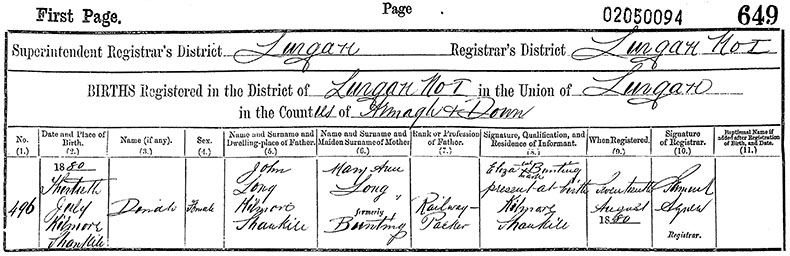 First Page. Page 02050094 649
Superintendent Registrar's District Lurgan Registrar's District Lurgan No I
BIRTHS Registered in the District of Lurgan No I in the Union of Lurgan
in the Counties of Armagh & Down
No. (1.) Date and Place of Birth. (2.) Name (if any). (3.) Sex. (4.) Name and Surname and Dwelling-place of Father. (5.) Name and Surname and Maiden Surname of Mother (6.) Rank or Profession of Father. (7.) Signature, Qualification, and Residence of Informant. (8.) When Registered. (9.) Signature of Registrar. (10.) Baptismal Name if added after Registration of Birth, and Date. (11.)
1880 John Mary Ann Eliza her x mark Bunting
Thirtieth Long Long present at birth Samuel
496 July Female Kilmore formerly Railway Kilmore August Agnew
Kilmore Shankill Bunting Packer Shankill 1880 Registrar.
Shankill